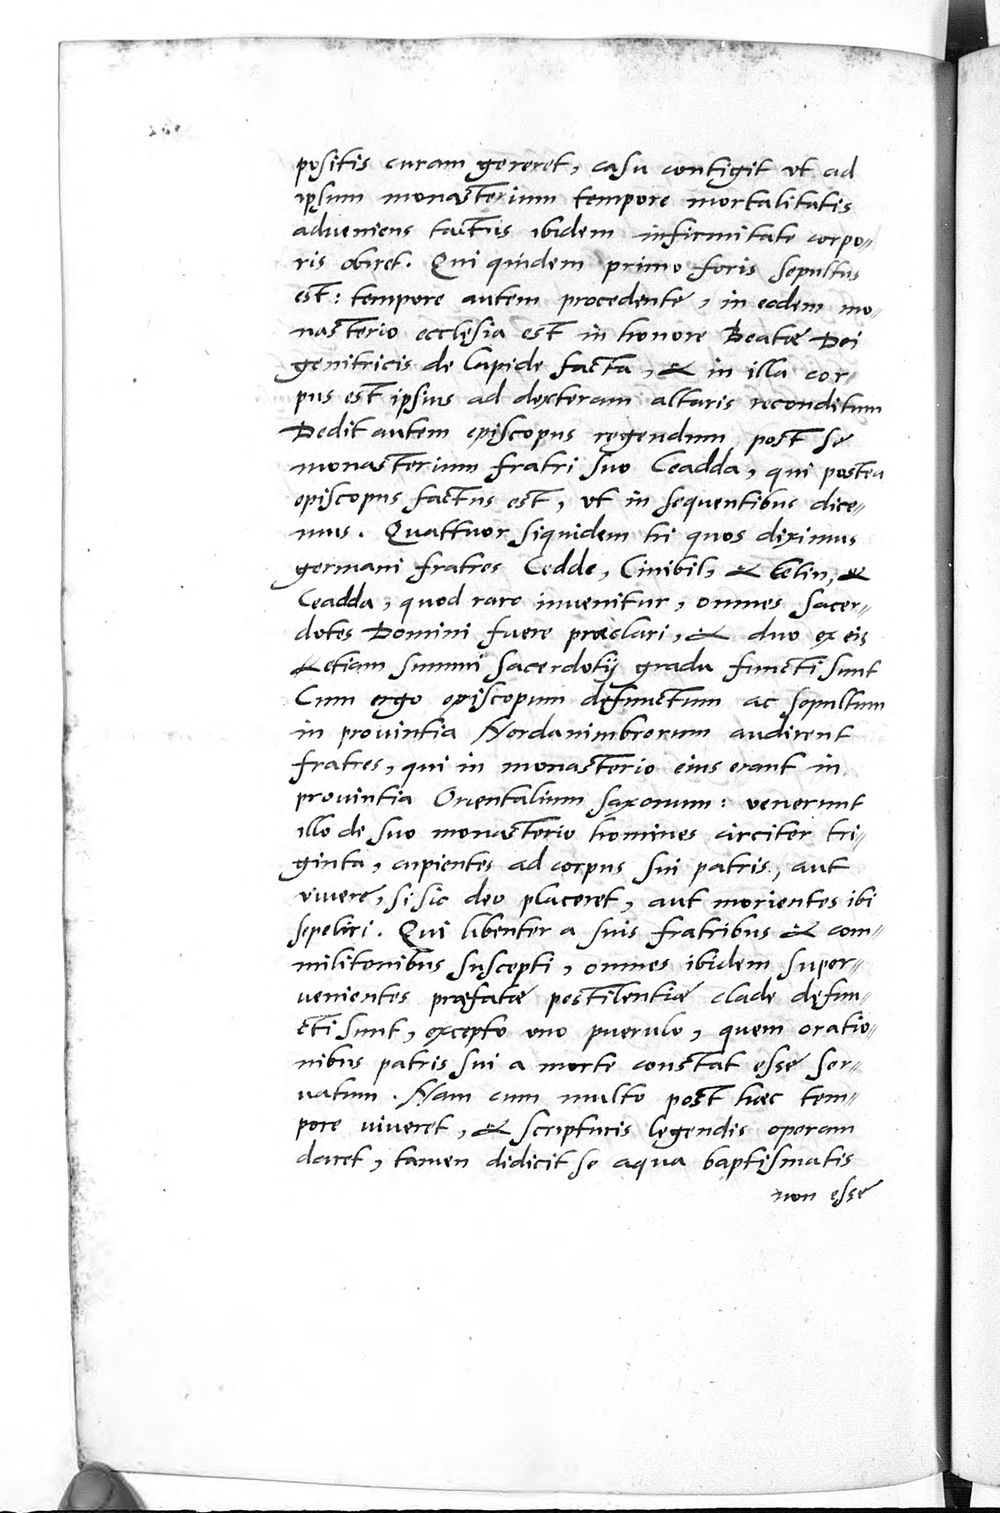 positis curam gereret, casu contigit ut ad
ipsum monasterium tempore mortalitatis
adveniens tactus ibidem infirmitate corpo-
ris obiret. Qui quidem primo foris sepultus
est: tempore autem procedente, in eodem mo-
nasterio ecclesia est in honore Beatæ Dei
genitricis de lapide facta, & in illa cor-
pus est ipsius ad dexteram altaris reconditum
Dedit autem episcopus regendum post se
monasterium fratri suo Ceadda, qui postea
episcopus factus est, ut in sequentibus dice-
mus. Quattuor siquidem hi quos diximus
germani fratres Cedde, Cinibil, & Celin, &
Ceadda, quod raro invenitur, omnes sacer-
dotes Domini fuere præclari, & duo ex eis
& etiam summi sacerdotij gradu functi sunt
Cum ergo episcopum defunctum ac sepultum
in provintia Nordanimbrorum audirent
fratres, qui in monasterio eius erant in
provintia Orientalium saxonum: venerunt
illo de suo monasterio homines circiter tri-
ginta, cupientes ad corpus sui patris, aut
vivere, si sic deo placeret, aut morientes ibi
sepeliri. Qui libenter a suis fratribus & com-
militonibus suscepti, omnes ibidem super-
venientes præfatæ pestilentiæ clade defun-
cti sunt, excepto uno puerulo, quem oratio-
nibus patris sui a morte constat esse ser-
vatum. Nam cum multo post hæc tem-
pore viveret, & scripturis legendis operam
daret, tamen didicit se aqua baptismatis
non esse